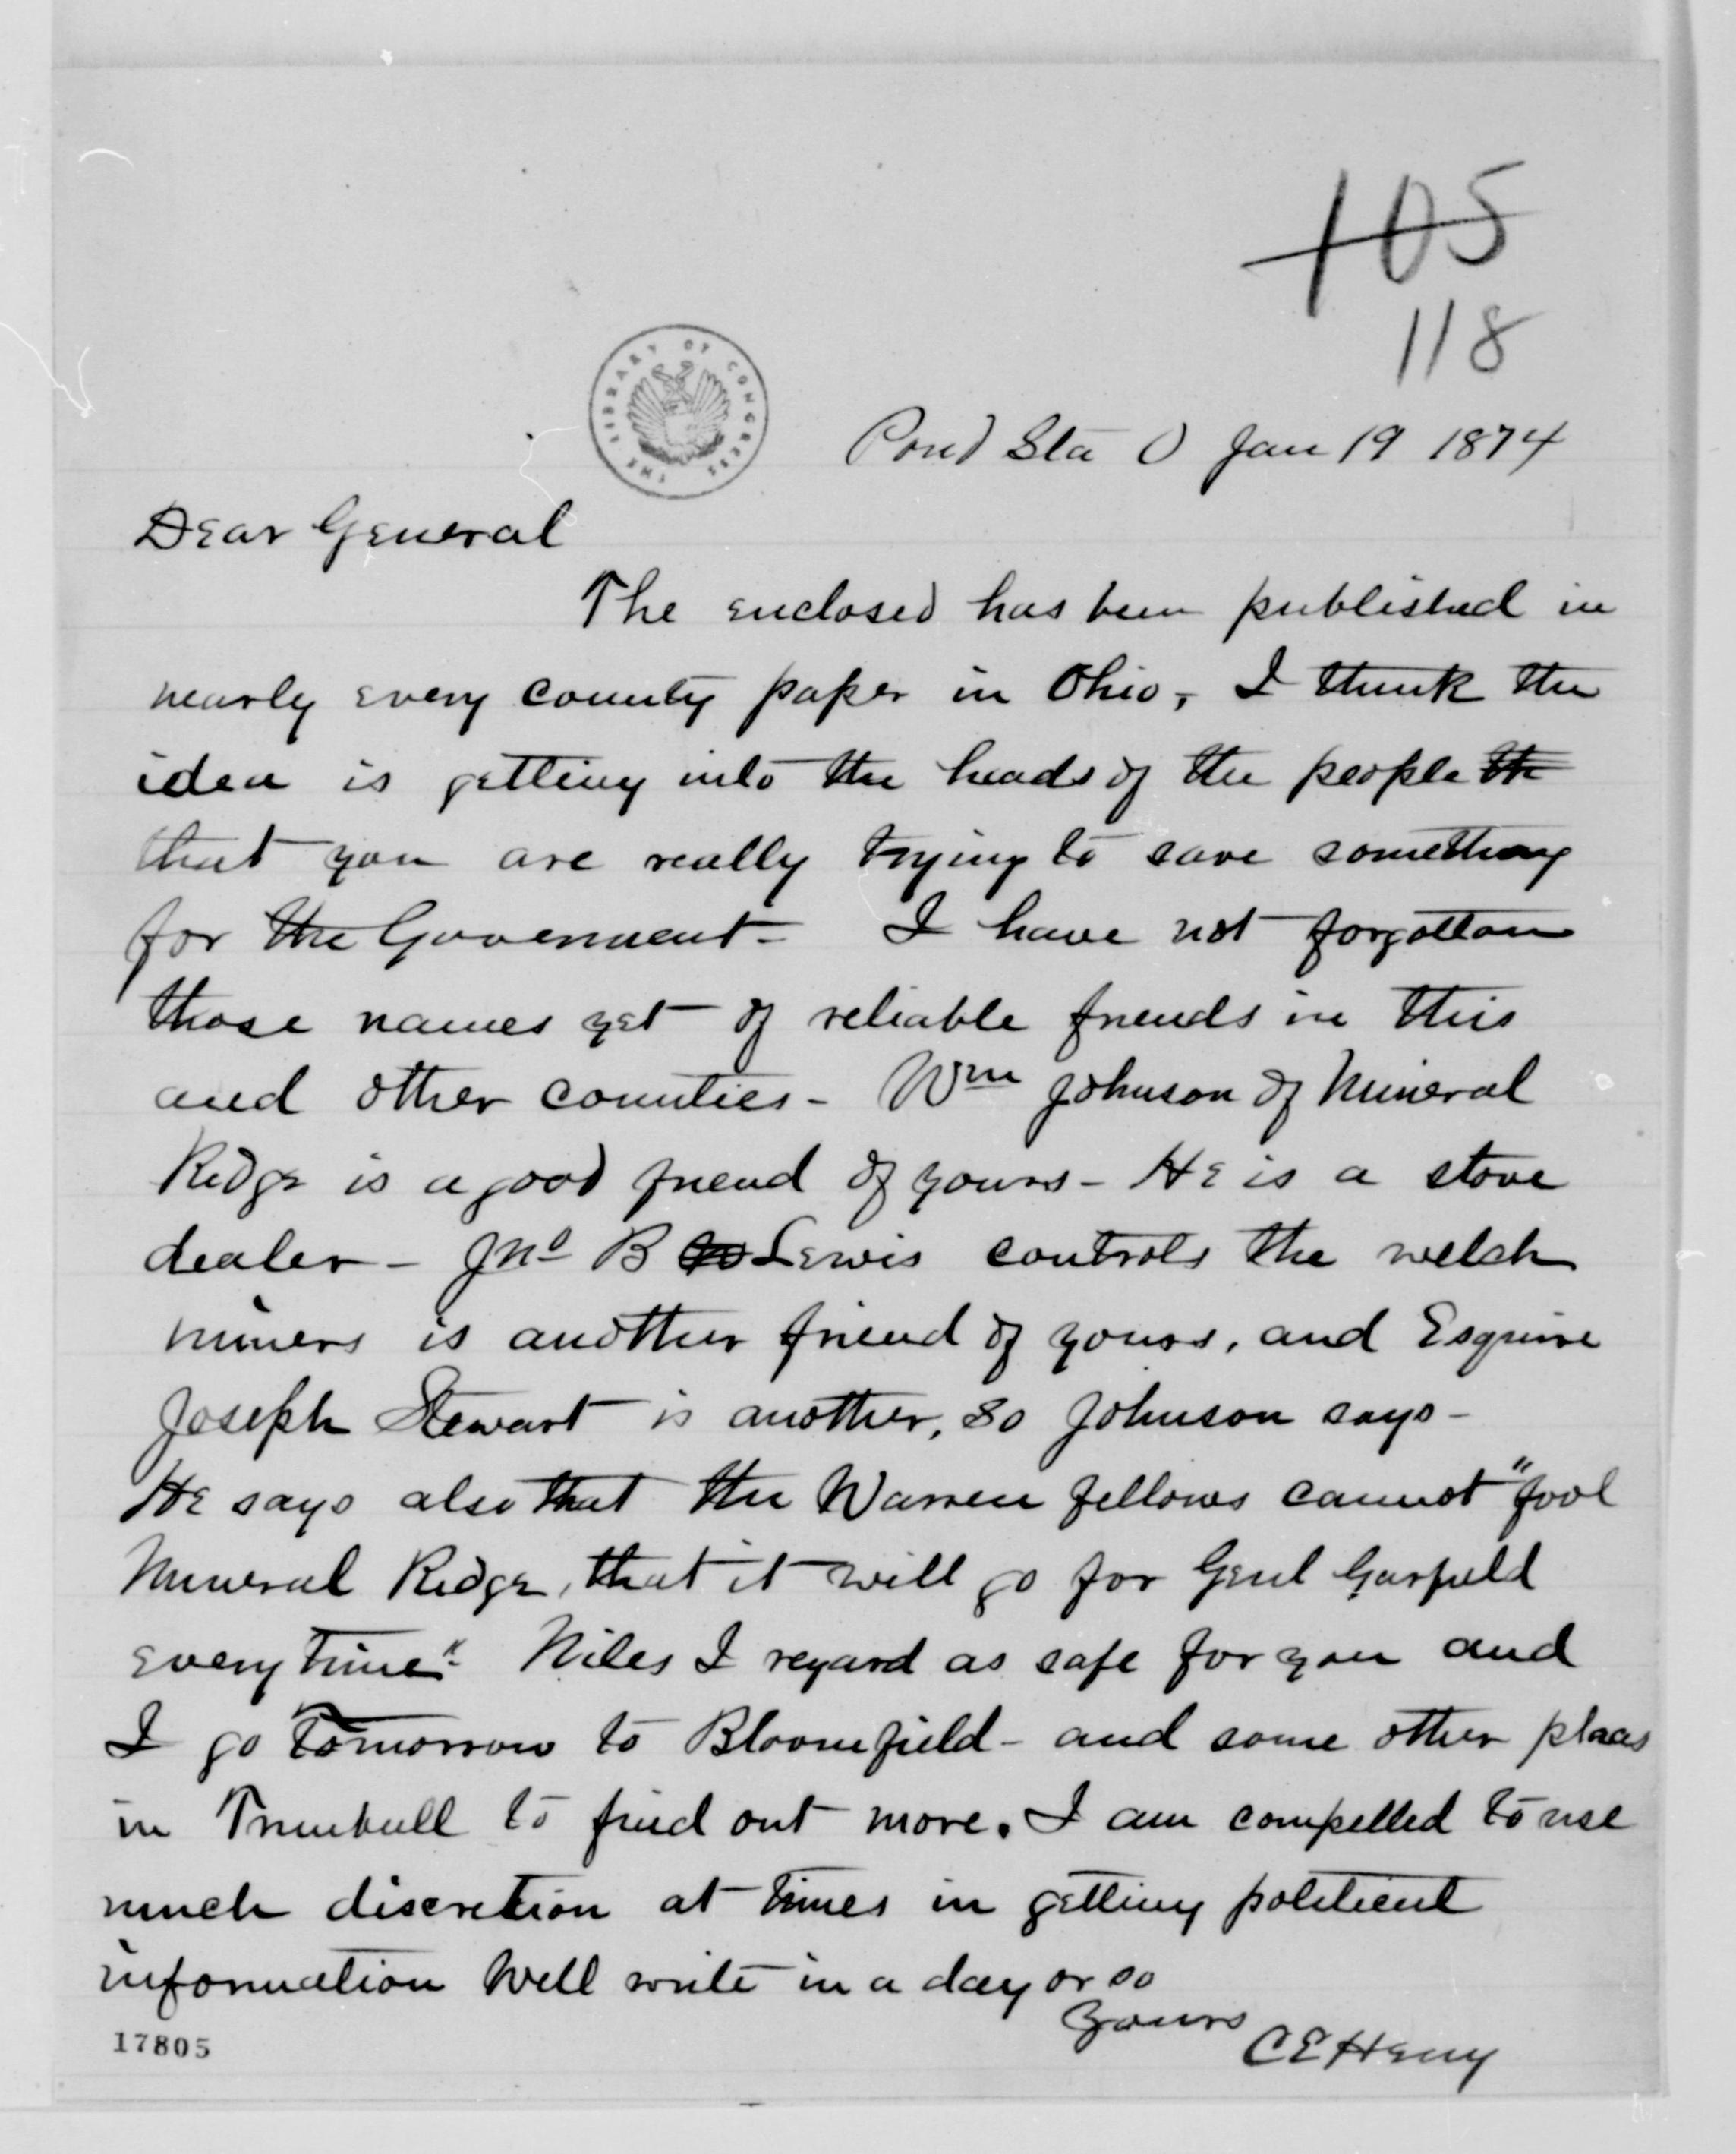 105
118
THE LIBRARY OF CONGRESS
Pond Sta O Jan 19 1874
Dear General
The enclosed has been published in
nearly every county paper in Ohio, I think the
idea is getting into the heads of the people the
that you are really trying to save something
for the Government - I have not forgotton
those names yet of reliable friends in this
and other counties - Wm Johnson of Mineral
Ridge is a good friend of yours - He is a stove
dealer - Jno B Lewis controls the welch
miners is another friend of yours, and Esquire
Joseph Stewart is another, so Johnson says -
He says also that the Warren fellows cannot "fool
Mineral Ridge, that it will go for Genl Garfield
every time". Niles I regard as safe for you and
I go tomorrow to Bloomfield - and some other places
in Trumbull to find out more. I am compelled to use
much discretion at times in getting political
information Will write in a day or so
Yours
C E Henry
17805